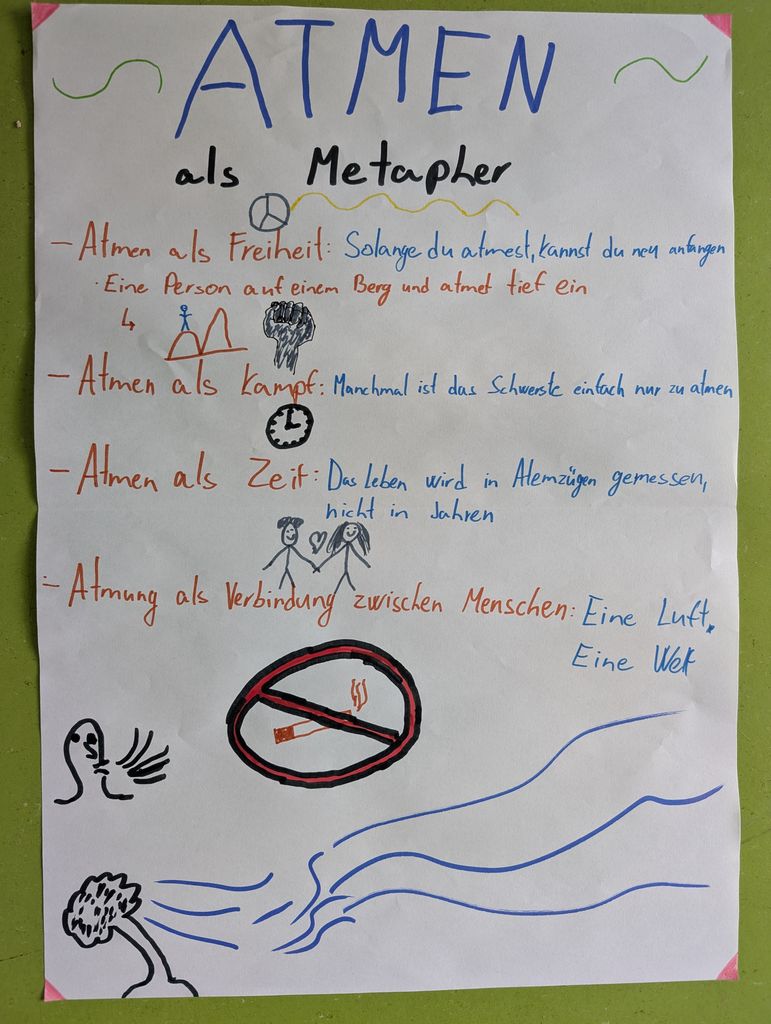 ATMEN
als Metapher
- Atmen als Freiheit: Solange du atmest, kannst du neu anfangen
· Eine Person auf einem Berg und atmet tief ein
- Atmen als Kampf: Manchmal ist das Schwerste einfach nur zu atmen
- Atmen als Zeit: Das Leben wird in Atemzügen gemessen,
nicht in Jahren
- Atmung als Verbindung zwischen Menschen: Eine Luft,
Eine Welt